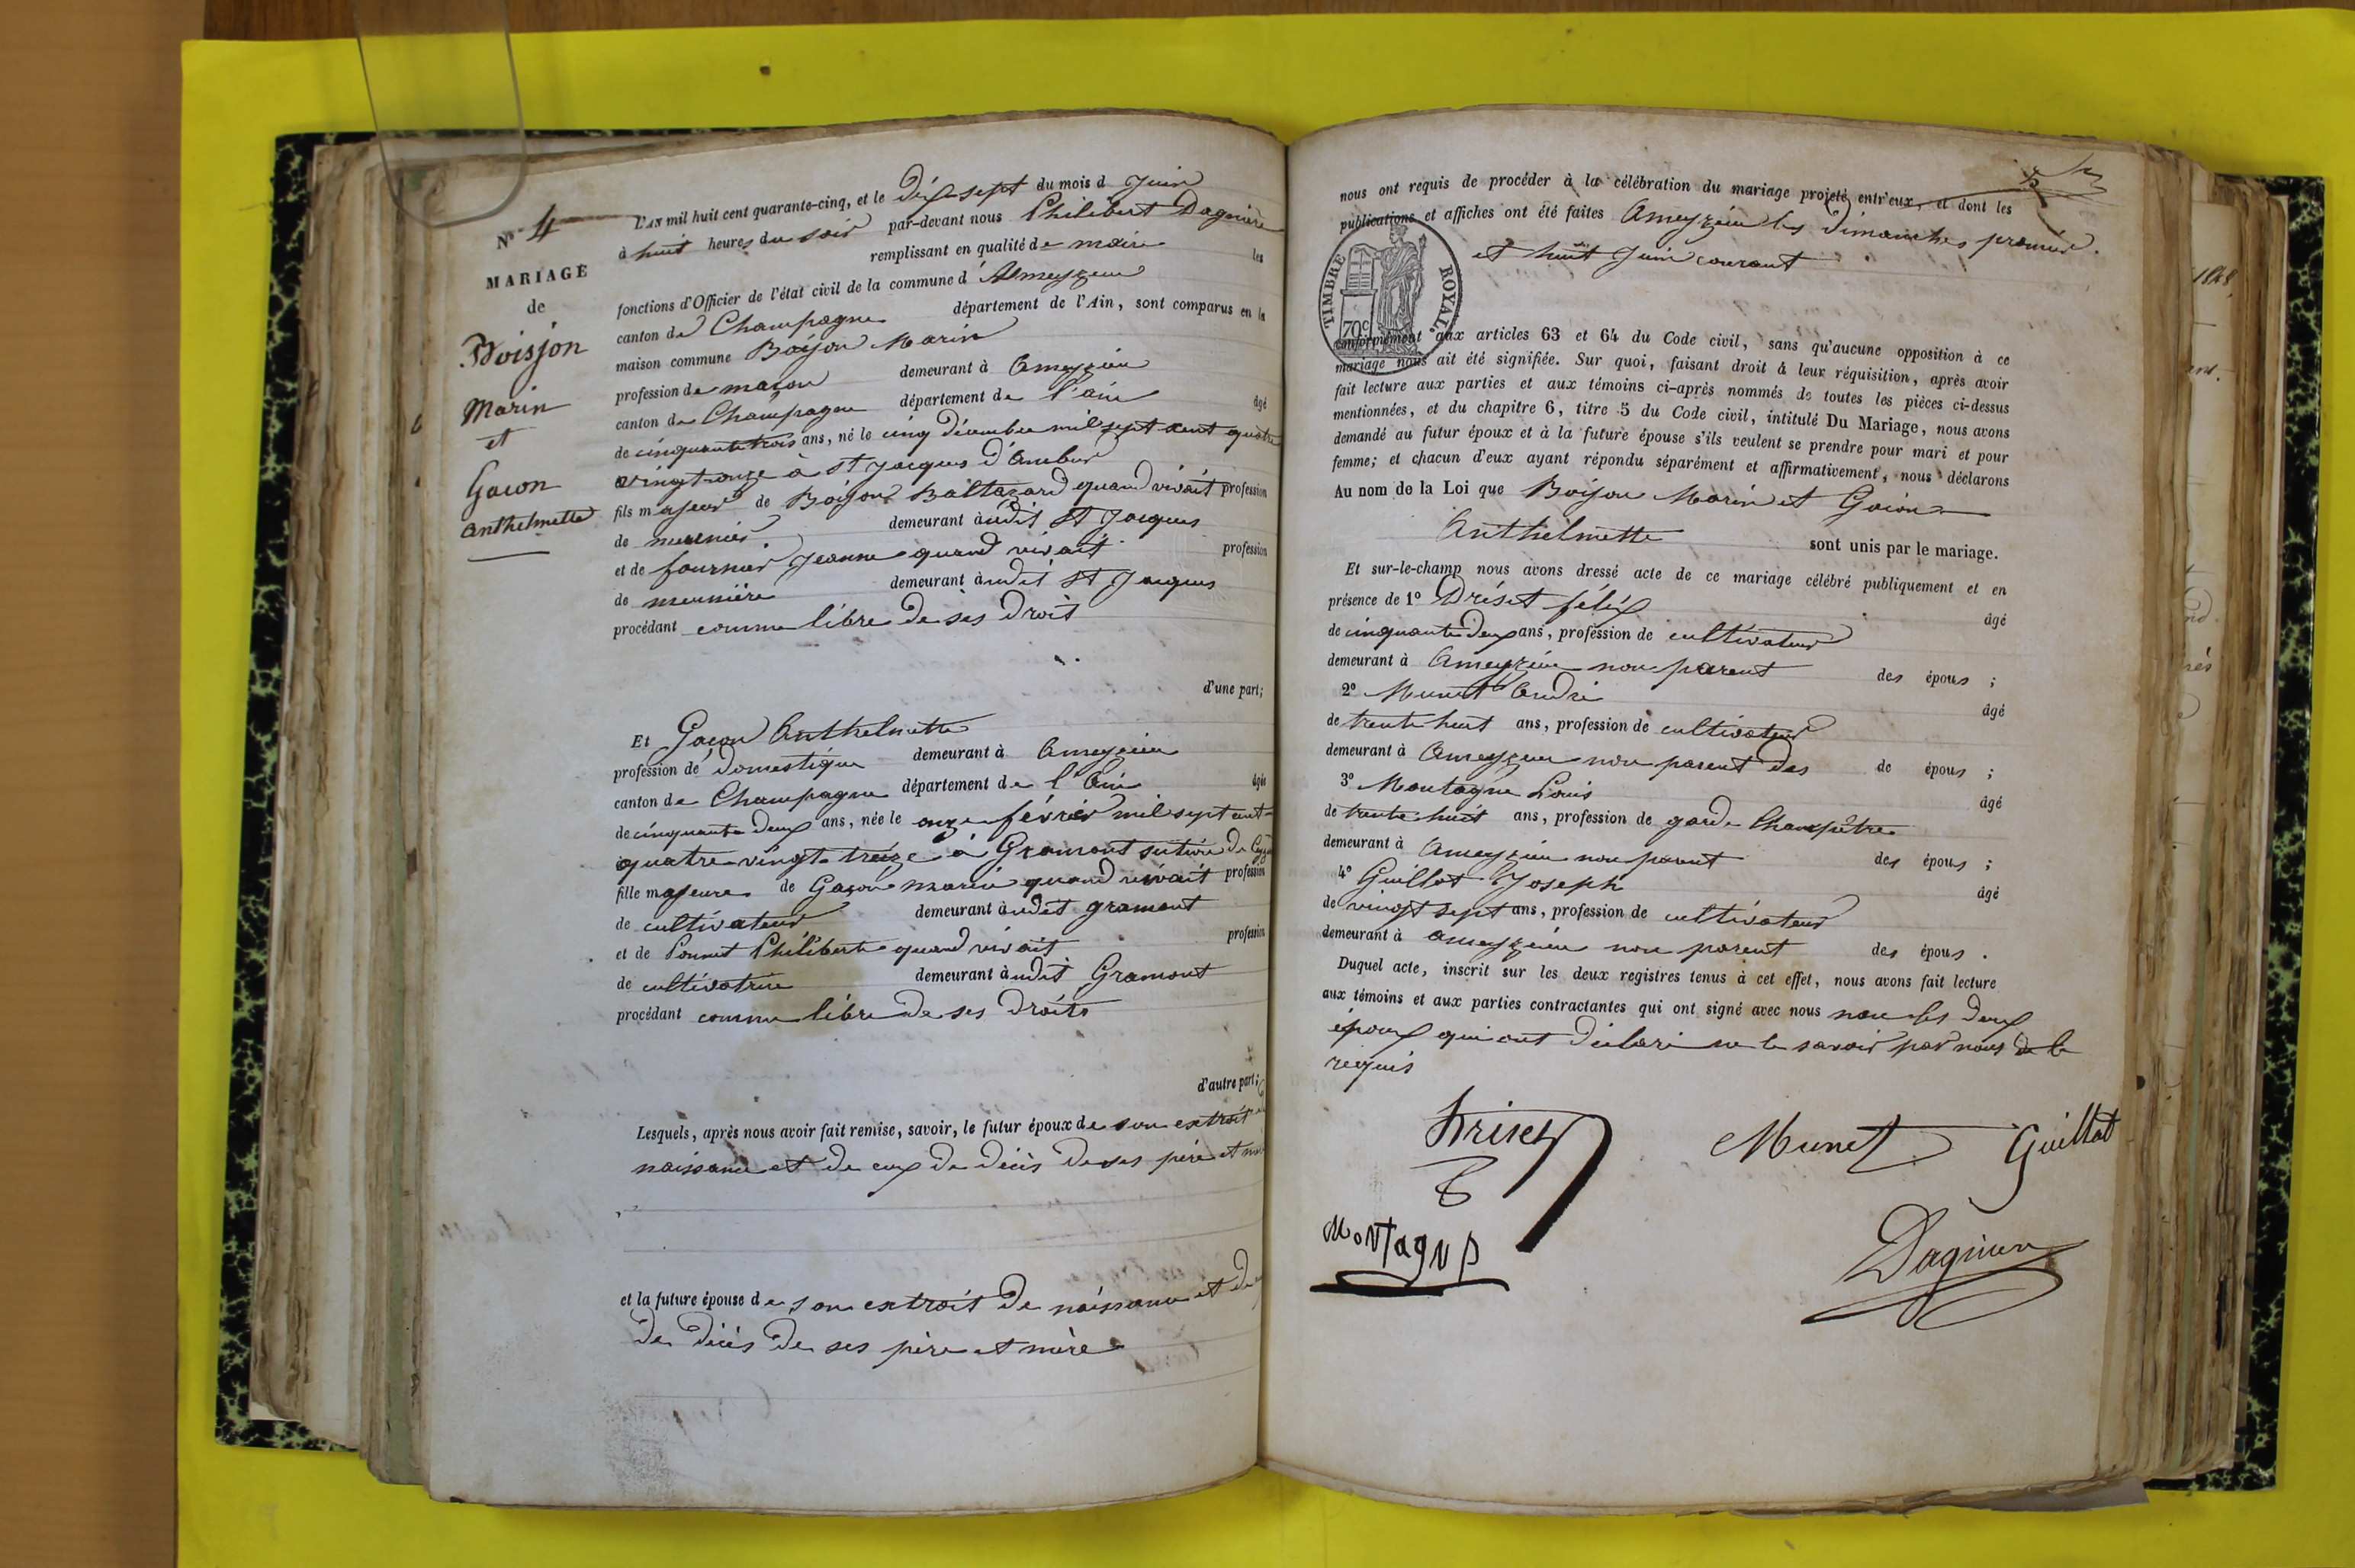 N° 4
MARIAGE
de
Boisson
Marin
et
Gacon
Anthelmette
L'AN mil huit cent quarante-cinq, et le dix sept du mois d Juin
à huit heures du soir par-devant nous Philibert Dagnier
remplissant en qualité de maire les
fonctions d'Officier de l'état civil de la commune d' Ameyzieu
canton de Champagne département de l'Ain, sont comparus en la
maison commune Boisson Marin
profession de maçon demeurant à Ameyzieu
canton de Champagne département de l'ain âgé
de cinquante trois ans, né le cinq décembre mil sept cent quatre
vingt onze à St Jacques d'
fils majeur de Boisson Baltazard quand vivait profession
de meunier demeurant audit St Jacques
et de fournier Jeanne quand vivait profession
de meunière demeurant audit St Jacques
procédant comme libre de ses droit
d'une part;
Et Gacon Anthelmette
profession de domestique demeurant à Ameyzieu
canton de Champagne département de l'Ain âgée
de cinquante deux ans, née le onze février mil sept cent
quatre vingt treize à Gramont section de
fille majeure de Gacon marin quand vivait profession
de cultivateur demeurant audit gramont
et de Ponnet Philiberte quand vivait profession
de cultivatrice demeurant audit Gramont
procédant comme libre de ses droits
d'autre part;
Lesquels, après nous avoir fait remise, savoir, le futur époux de son extrait
naissance et de ceux de décès de ses père et
et la future épouse de son extrait de naissance et de
de décès de ses père et mère
nous ont requis de procéder à la célébration du mariage projeté entr'eux, et dont les
publications et affiches ont été faites Ameyzieu les dimanches premier
et huit Juin courant
TIMBRE ROYAL.
70c
conformément aux articles 63 et 64 du Code civil, sans qu'aucune opposition à ce
mariage nous ait été signifiée. Sur quoi, faisant droit à leur réquisition, après avoir
fait lecture aux parties et aux témoins ci-après nommés de toutes les pièces ci-dessus
mentionnées, et du chapitre 6, titre 5 du Code civil, intitulé Du Mariage, nous avons
demandé au futur époux et à la future épouse s'ils veulent se prendre pour mari et pour
femme; et chacun d'eux ayant répondu séparément et affirmativement, nous déclarons
Au nom de la Loi que Boisson Marin et Gacon
Anthelmette sont unis par le mariage.
Et sur-le-champ nous avons dressé acte de ce mariage célébré publiquement et en
présence de 1° Driset félix âgé
de cinquante deux ans, profession de cultivateur
demeurant à Ameyzieu non parent des époux ;
2° Munet André âgé
de trente huit ans, profession de cultivateur
demeurant à Ameyzieu non parent des de époux ;
3° Montagne Louis âgé
de trente huit ans, profession de garde Champêtre
demeurant à Ameyzieu non parent des époux ;
4° Guillot Joseph âgé
de vingt sept ans, profession de cultivateur
demeurant à Ameyzieu non parent des époux .
Duquel acte, inscrit sur les deux registres tenus à cet effet, nous avons fait lecture
aux témoins et aux parties contractantes qui ont signé avec nous non les deux
époux qui ont déclaré ne le savoir par nous de le
requis
Driset
Munet
Guillot
Montagne
Dagnier
1848